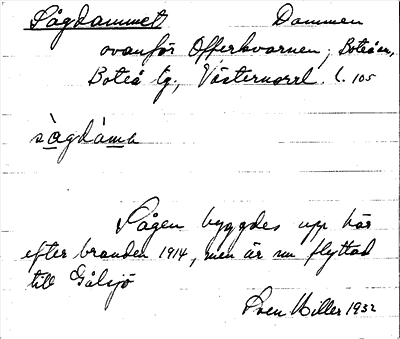 Sågdammet Dammen
ovanför Offerkvarnen, Boteåan,
Boteå tg, Västernorrl. l. 105
sàgdàmb
Sågen byggdes upp här
efter branden 1914, men är nu flyttad
till Gålsjö
Sven Hiller 1932